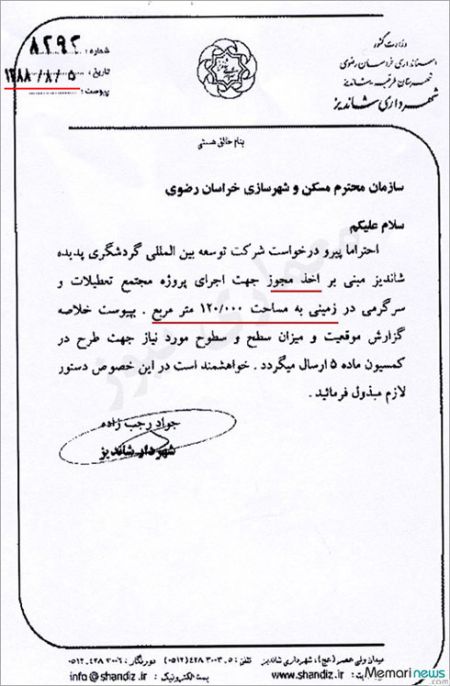 وزارت کشور
استانداری خراسان رضوی
شهرستان طرقبه شاندیز
شهرداری شاندیز
شماره: ۸۲۹۲
تاریخ: ۱۳۸۸/۸/۵
پیوست:
بنام خالق هستی
سازمان محترم مسکن و شهرسازی خراسان رضوی
سلام علیکم
احتراما پیرو درخواست شرکت توسعه بین المللی گردشگری پدیده
شاندیز مبنی بر اخذ مجوز جهت اجرای پروژه مجتمع تعطیلات و
سرگرمی در زمینی به مساحت ۱۲۰/۰۰۰ متر مربع . بپیوست خلاصه
گزارش موقعیت و میزان سطح و سطوح مورد نیاز جهت طرح در
کمسیون ماده ۵ ارسال میگردد . خواهشمند است در این خصوص دستور
لازم مبذول فرمائید .
جواد رجب زاده
شهردار شاندیز
میدان ولی عصر (عج)، شهرداری شاندیز تلفن : ۵-۴۲۸۳۰۰۳ (۰۵۱۲) دورنگار : ۴۲۸۳۰۰۶-۰۵۱۲
www.shandiz.ir پست الکترونیک : info@shandiz.ir
Memarinews.com